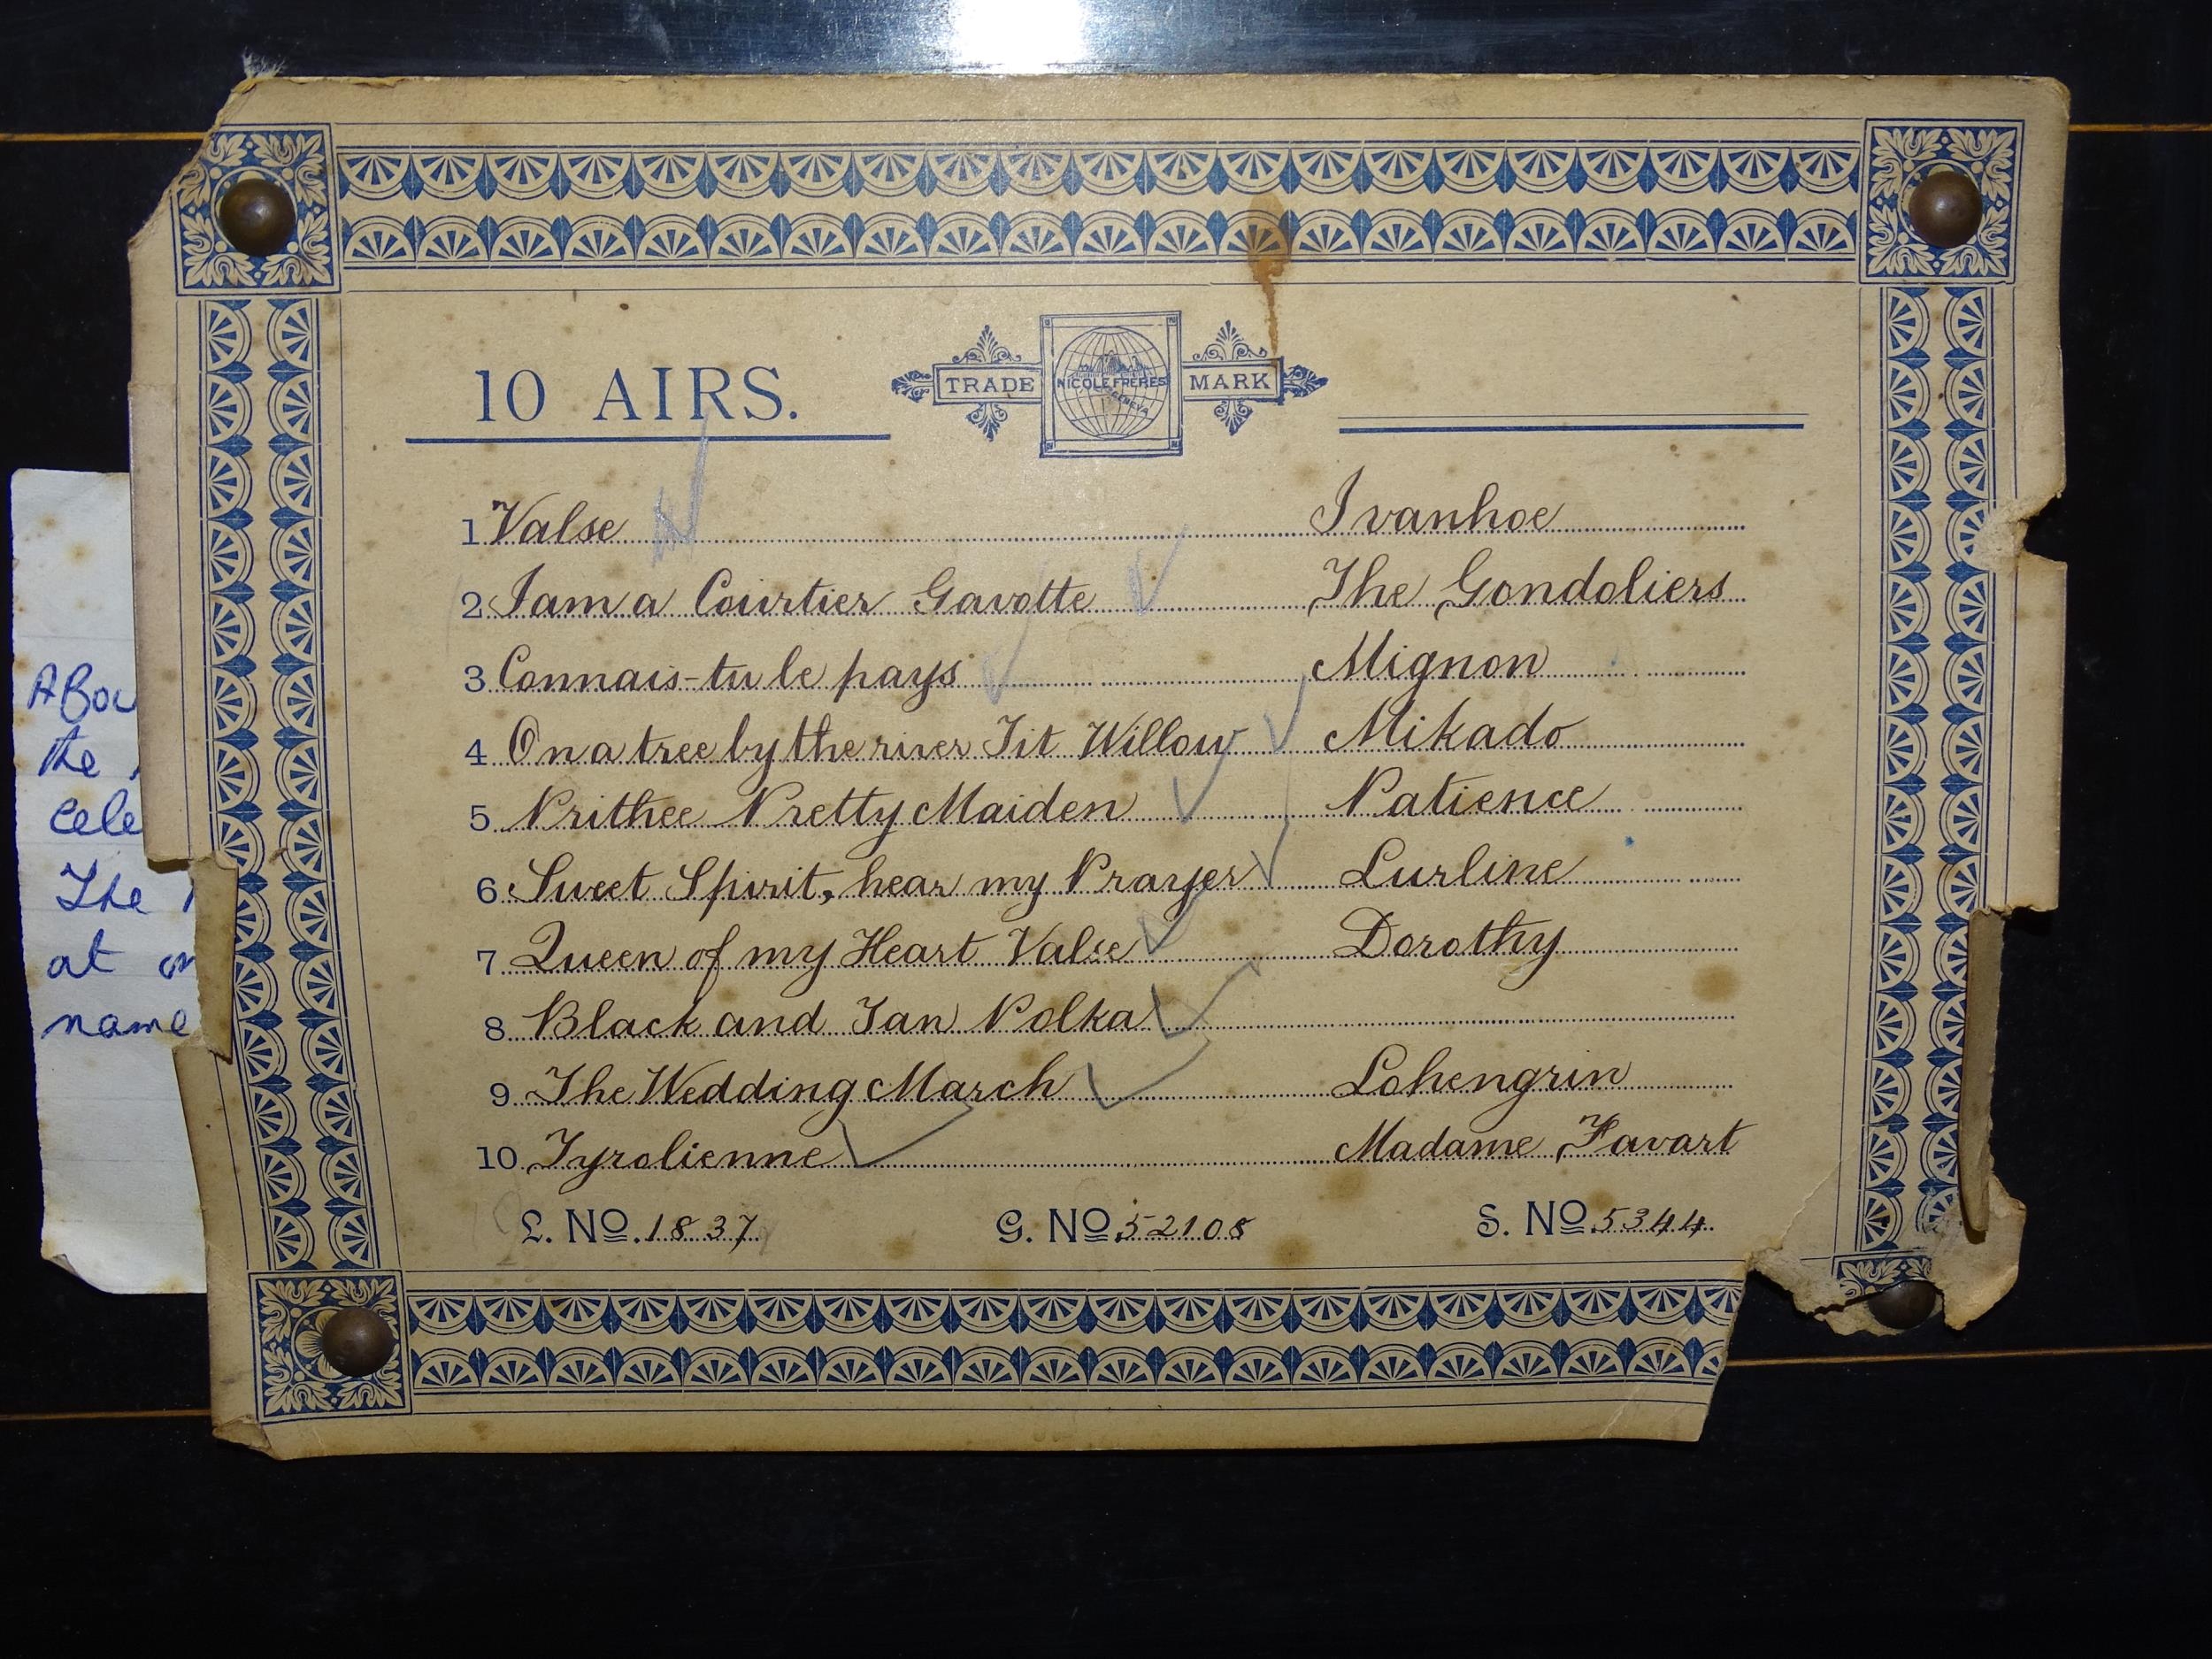 10 AIRS.
TRADE NICOLE FRERES GENEVA MARK
1 Valse Ivanhoe
2 I am a Courtier Gavotte The Gondoliers
3 Connais-tu le pays Mignon
4 On a tree by the river Tit Willow Mikado
5 Prithee Pretty Maiden Patience
6 Sweet Spirit, hear my Prayer Lurline
7 Queen of my Heart Valse Dorothy
8 Black and Tan Polka
9 The Wedding March Lohengrin
10 Tyrolienne Madame Favart
L. No. 1837 G. No 52108 S. No 5344
the
The
at
name